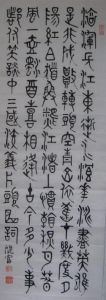 滾滾長江東逝水浪花淘盡英雄
是非成敗轉頭空青山依舊在幾度夕
陽紅白髮漁樵江渚上慣看秋月春
風一壺濁酒喜相逢古今多少事
都付笑談中三國演義片頭曲詞